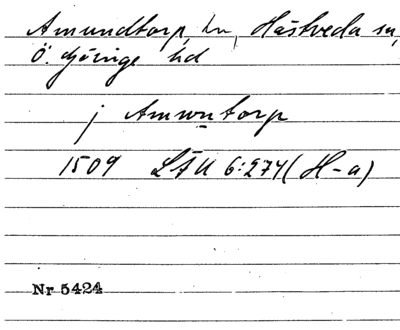 Amundtorp, hn, Hästveda sn,
Ö. Göinge hd
j Amwntorp
1509 LÄU 6:274 (H-a)
Nr 5424